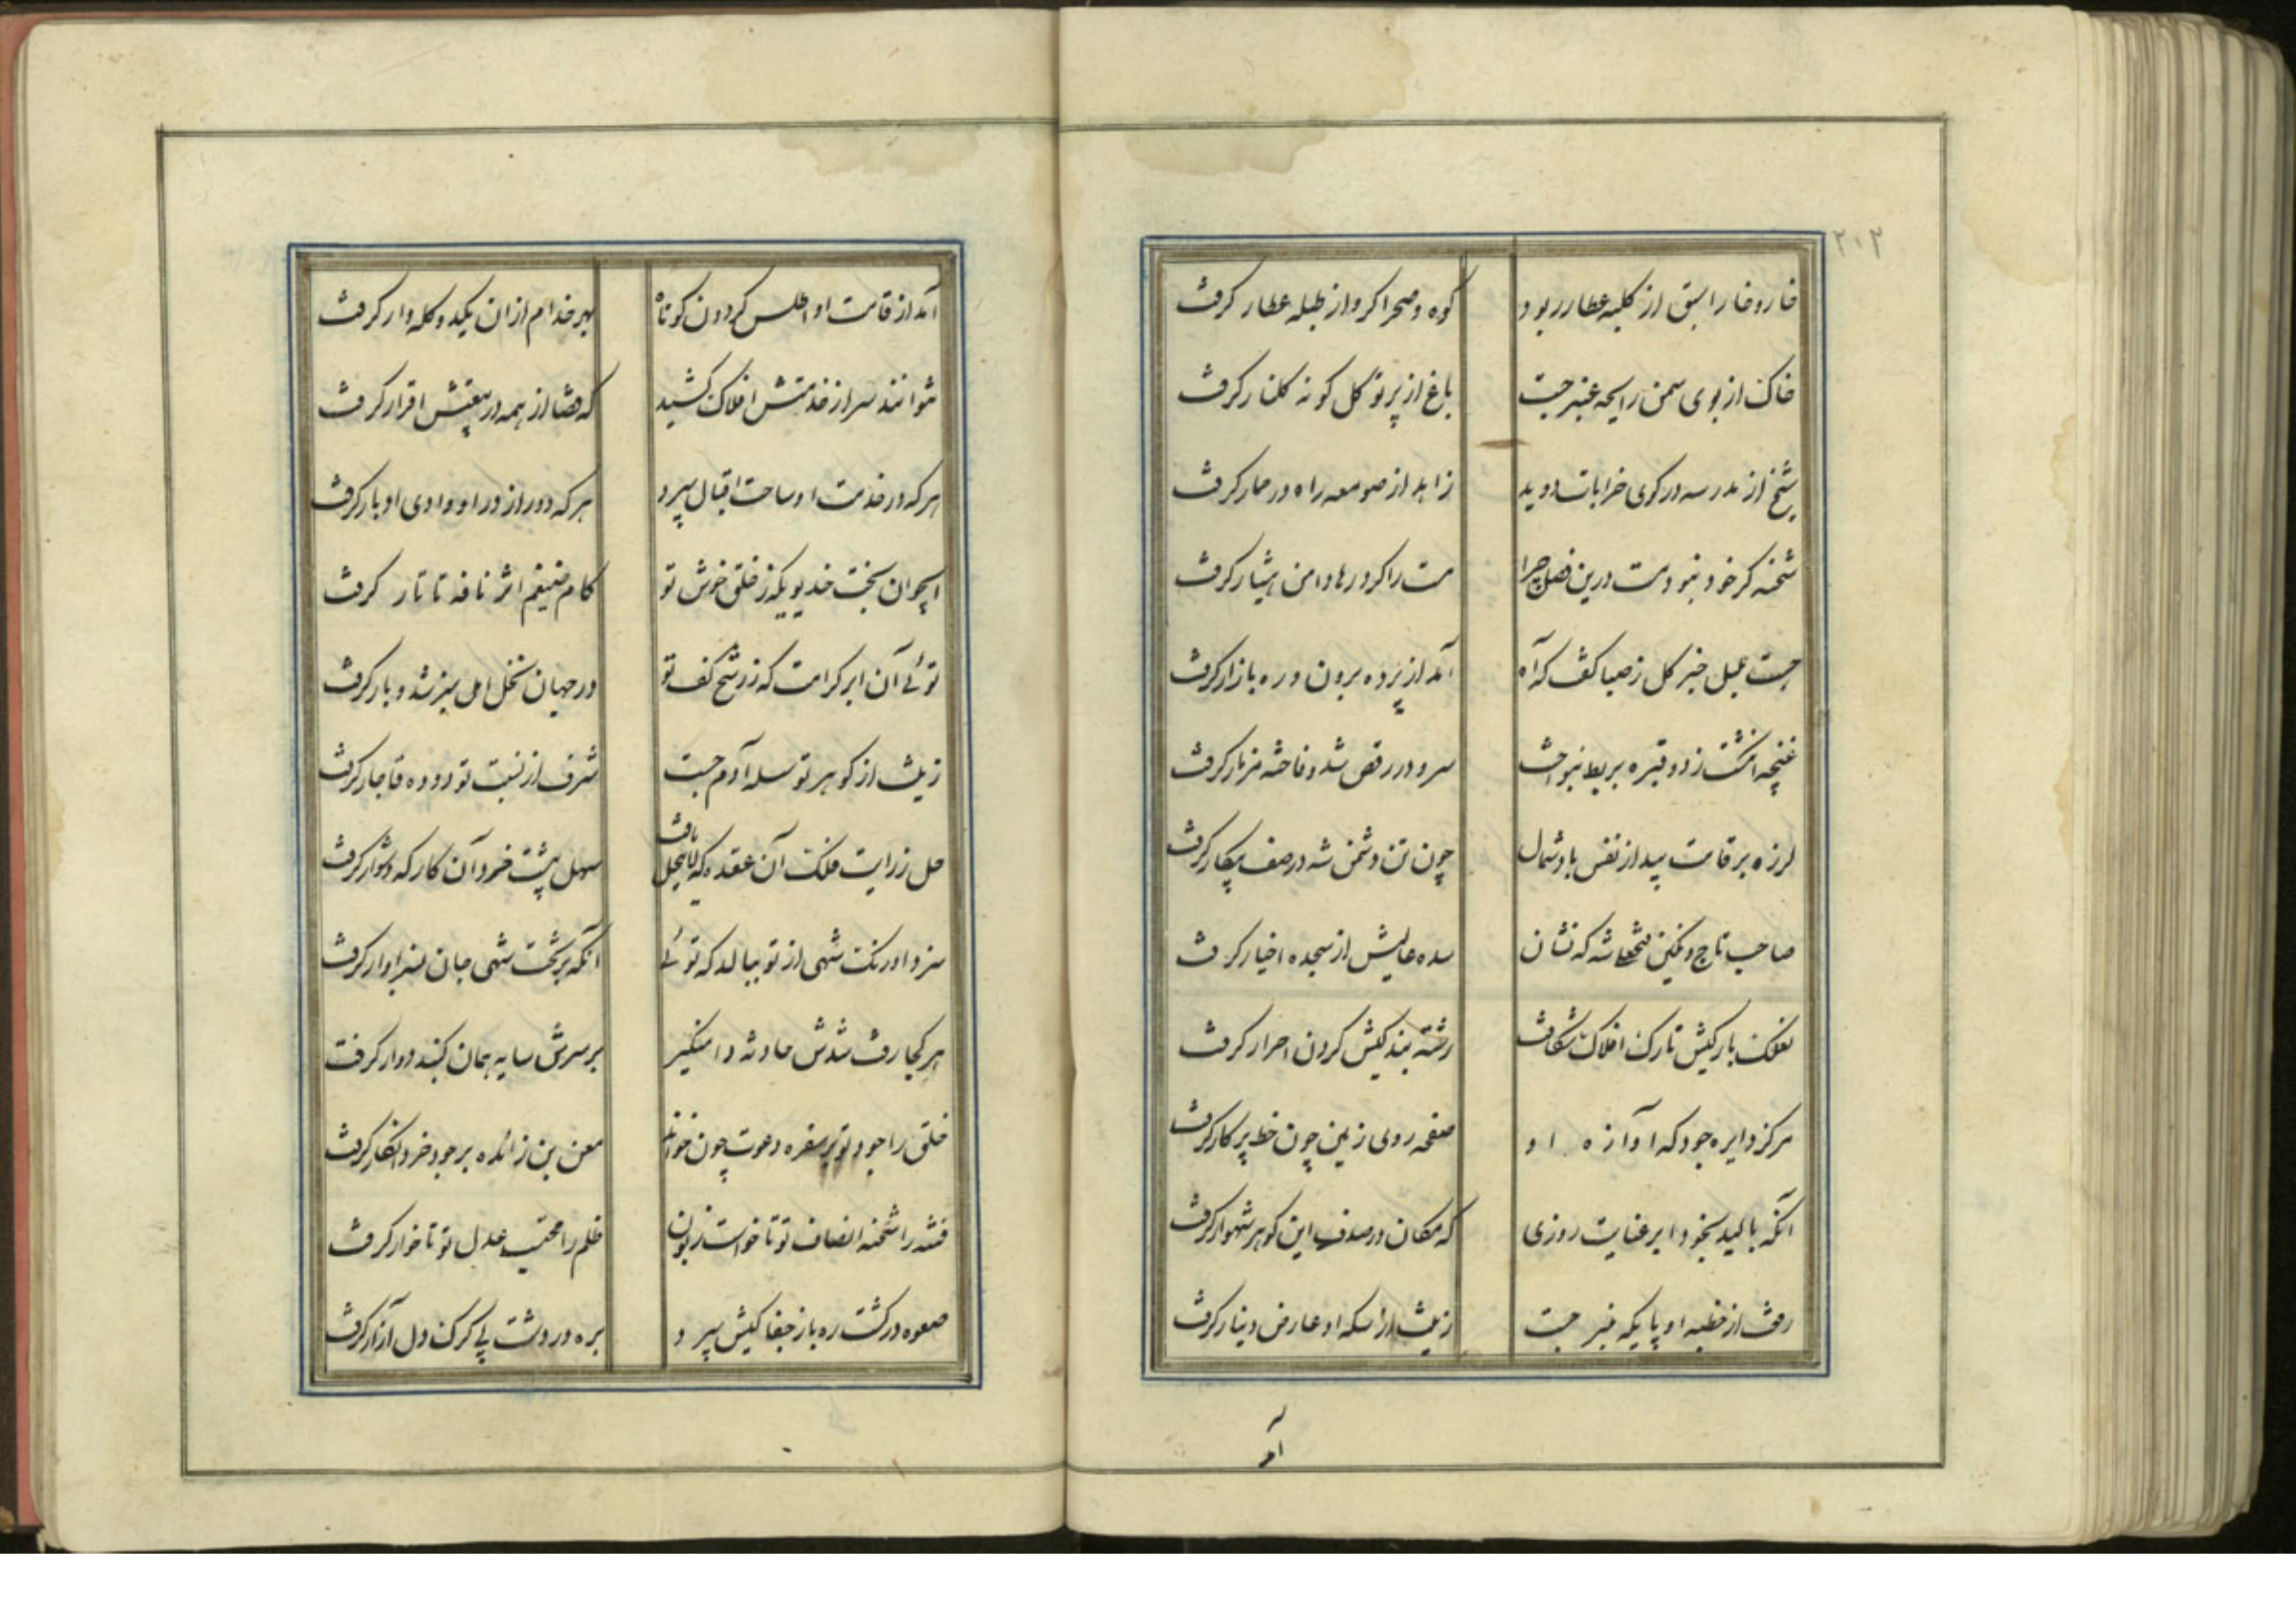 ۲۱۲
خار و خارا سبق از کلبه عطار ربود کوه و صحرا کرو از طبله عطار کرفت
خاک از بوی سمن رایحه عنبر جست باغ از پرتو کل کونه کلنار کرفت
شیخ از مدرسه در کوی خرابات دوید زاهد از صومعه راه در خمار کرفت
شحنه کر خود نبود مست درین فصل چرا مست را کرد رها دامن هشیار کرفت
جست بلبل خبر کل ز صبا کفت که آه آمد از پرده برون و ره بازار کرفت
غنچه انکشت زد و قبره بربط بنواخت سرو در رقص شد و فاخته مزمار کرفت
لرزه بر قامت بید از نفس باد شمال چون تن دشمن شه در صف پیکار کرفت
صاحب تاج و نکین فتحعلشاه که نشان سده عالیش از سجده اخیار کرفت
بارکیش تارک افلاک شکافت رشته بندکیش کردن احرار کرفت
مرکز دایره جود که آوازه او صفحه روی زمین چون خط پرکار کرفت
آنکه بالید بخود ابر عنایت روزی که مکان در صدف این کوهر شهوار کرفت
رفت از خطبه او پایکه منبر جست زینت از سکه او عارض دینار کرفت
آمد
آمد از قامت او اطلس کردون کوتاه بهر خدام ازان یکدو کله وار کرفت
نتوانند سر از خدمتش افلاک کشید که قضا از همه در بیعتش اقرار کرفت
هر که در خدمت او ساحت اقبال سپرد هر که دور از در او وادی ادبار کرفت
ایجوان بخت خدیویکه ز خلق خوش تو کام ضیغم اثر نافه تاتار کرفت
توئی آن ابر کرامت که ز رشح کف تو در جهان نخل امل سبز شد و بار کرفت
زینت از کوهر تو سلسله آدم جست شرف از نسبت تو دوده قاجار کرفت
حل ز رایت فلک آن عقده که لاینحل یافت سهل پیشت خرد آن کار که دشوار کرفت
سزد اورنک شهی از تو ببالد که توئی آنکه بر تخت شهی جان سزاوار کرفت
هر کجا رفت شدش حادثه دامنکیر بر سرش سایه همان کنبد دوار کرفت
خلق را جود تو بر سفره دعوت چون خواند معن بن زائده بر جود خود انکار کرفت
فتنه را شحنه انصاف تو تا خواست زبون ظلم را محتسب عدل تو تا خوار کرفت
صعوه در کشت ره باز جفا کیش سپرد بره در دشت پی کرک دل آزار کرفت